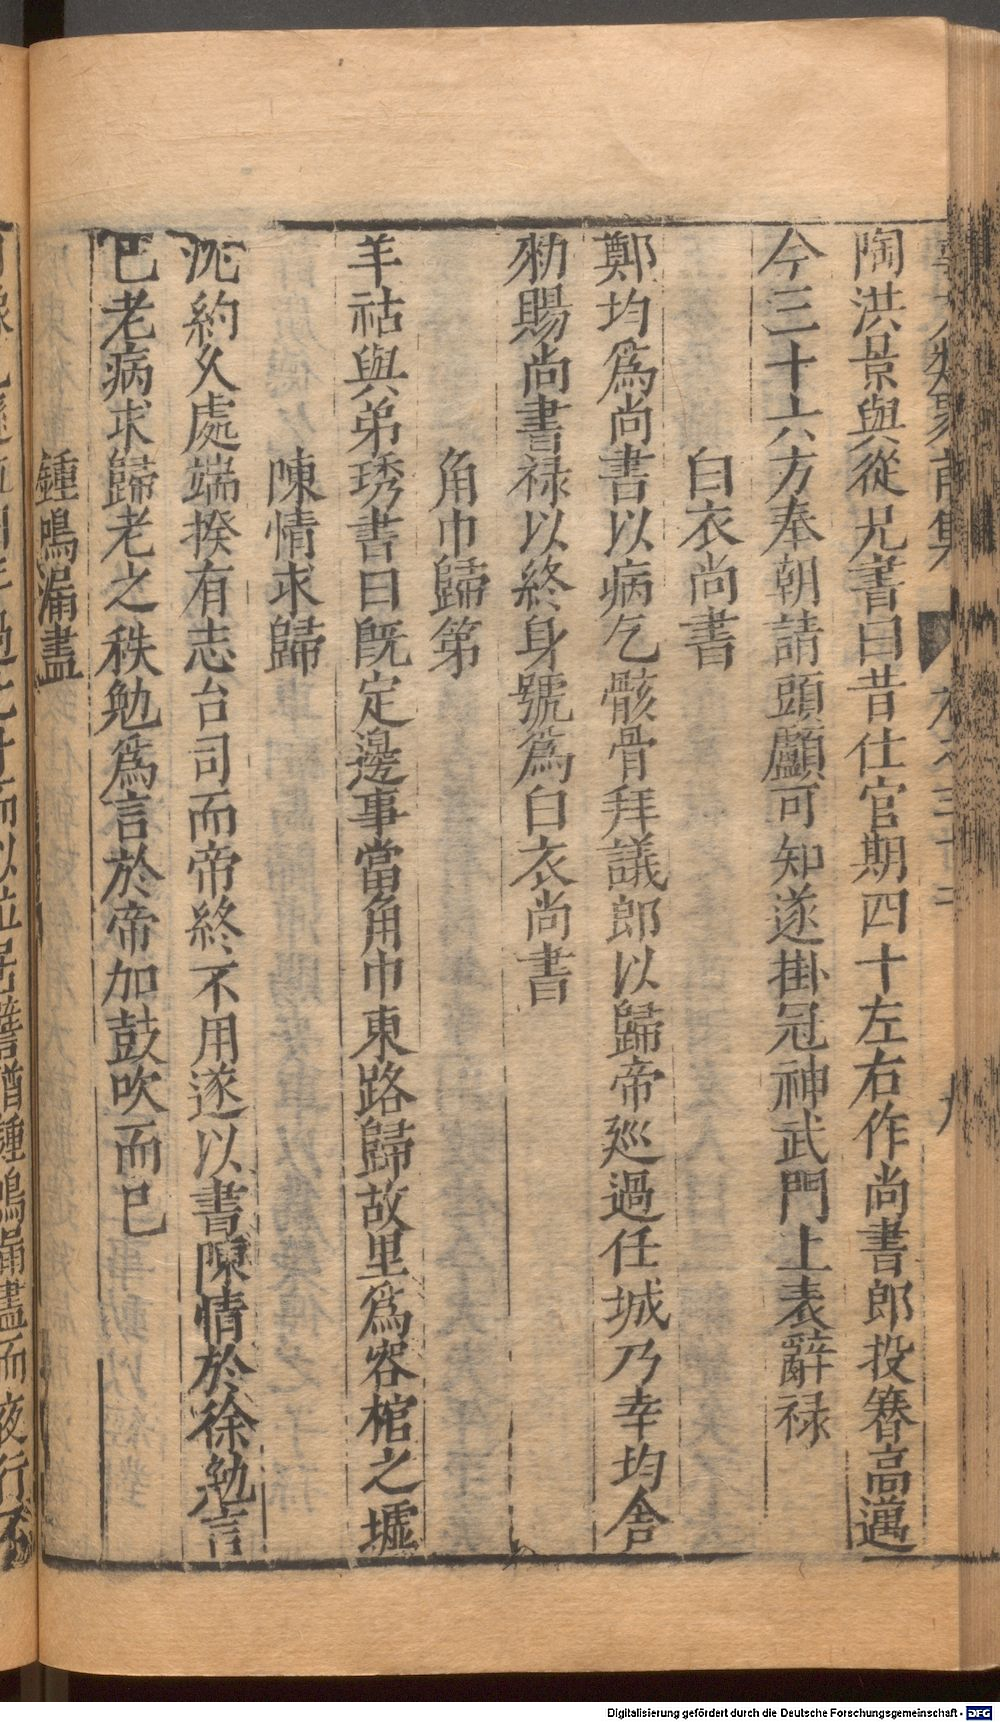 陶洪景與從兄書曰昔仕宦期四十左右作尚書郎投簪高邁
今三十六方奉朝請頭顱可知遂掛冠神武門上表辭禄
白衣尚書
鄭均爲尚書以病乞骸骨拜議郎以歸帝廵過任城乃幸均舍
勑賜尚書禄以終身號爲白衣尚書
角巾歸第
羊祜與弟琇書曰旣定邊事當角巾東路歸故里爲容棺之墟
陳情求歸
沈約乆處端揆有志台司而帝終不用遂以書陳情於徐勉言
已老病求歸老之秩勉爲言於帝加鼓吹而已
鍾鳴漏盡
鍾鳴漏盡而夜行不
Digitalisierung gefördert durch die Deutsche Forschungsgemeinschaft - DFG